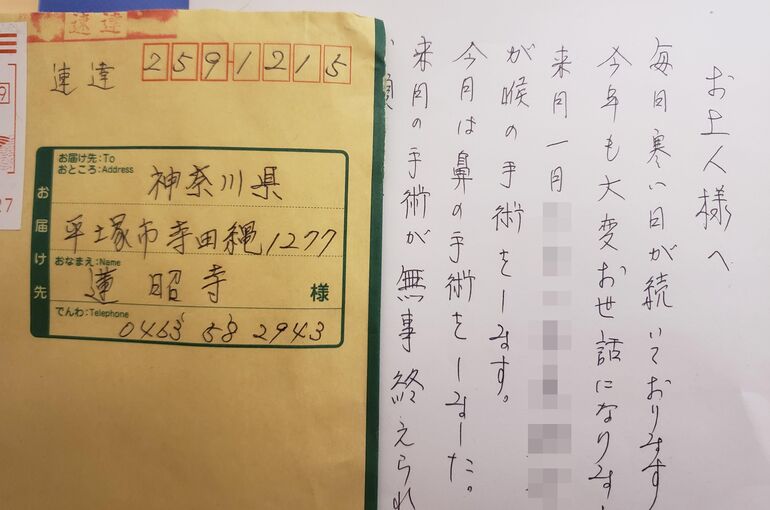 速達
速達
259-1215
お届け先:To
おところ:Address
神奈川県
平塚市寺田縄1277
おなまえ:Name
蓮昭寺 様
でんわ:Telephone
0463 58 2943
お届け先
27
お上人様へ
毎日寒い日が続いております
今年も大変お世話になりまし
来月一月
が喉の手術をします。
今月は鼻の手術をしました。
来月の手術が無事終えられ